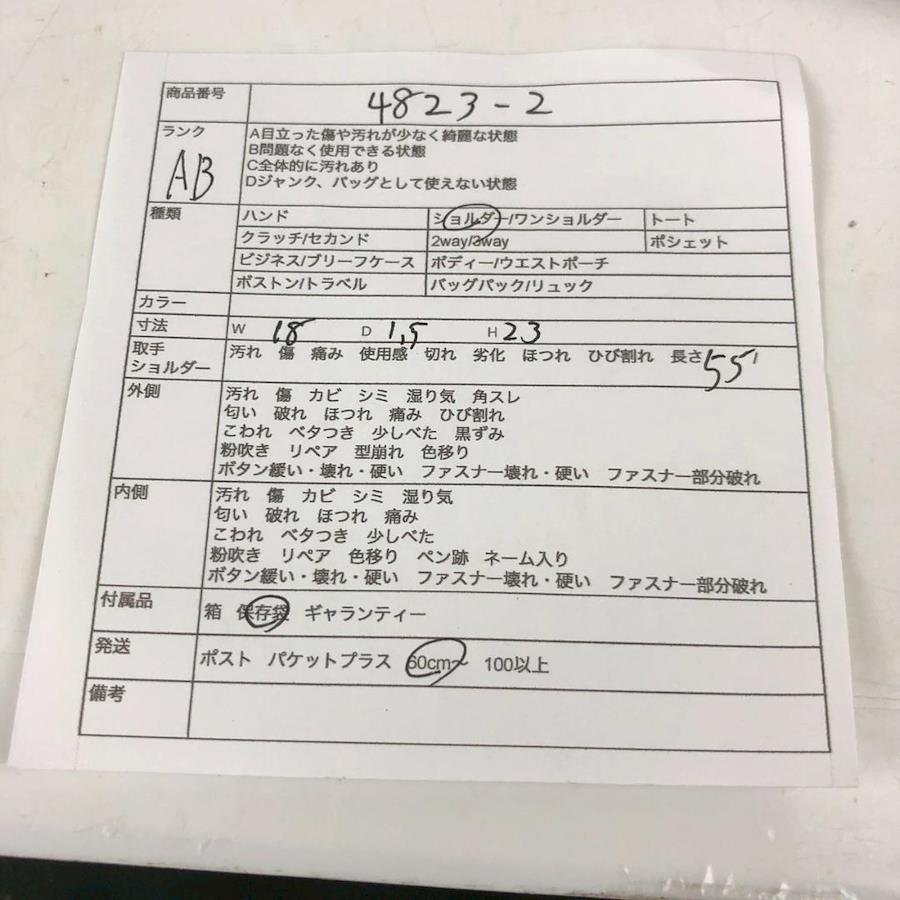 商品番号 4823-2
ランク AB
A目立った傷や汚れが少なく綺麗な状態
B問題なく使用できる状態
C全体的に汚れあり
Dジャンク、バッグとして使えない状態
種類 ハンド ショルダー/ワンショルダー トート
クラッチ/セカンド 2way/3way ポシェット
ビジネス/ブリーフケース ボディー/ウエストポーチ
ボストン/トラベル バッグパック/リュック
カラー
寸法 W 18 D 1,5 H 23
取手
ショルダー
汚れ 傷 痛み 使用感 切れ 劣化 ほつれ ひび割れ 長さ 55
外側 汚れ 傷 カビ シミ 湿り気 角スレ
匂い 破れ ほつれ 痛み ひび割れ
こわれ ベタつき 少しべた 黒ずみ
粉吹き リペア 型崩れ 色移り
ボタン緩い・壊れ・硬い ファスナー壊れ・硬い ファスナー部分破れ
内側 汚れ 傷 カビ シミ 湿り気
匂い 破れ ほつれ 痛み
こわれ ベタつき 少しべた
粉吹き リペア 色移り ペン跡 ネーム入り
ボタン緩い・壊れ・硬い ファスナー壊れ・硬い ファスナー部分破れ
付属品 箱 保存袋 ギャランティー
発送 ポスト パケットプラス 60cm~ 100以上
備考